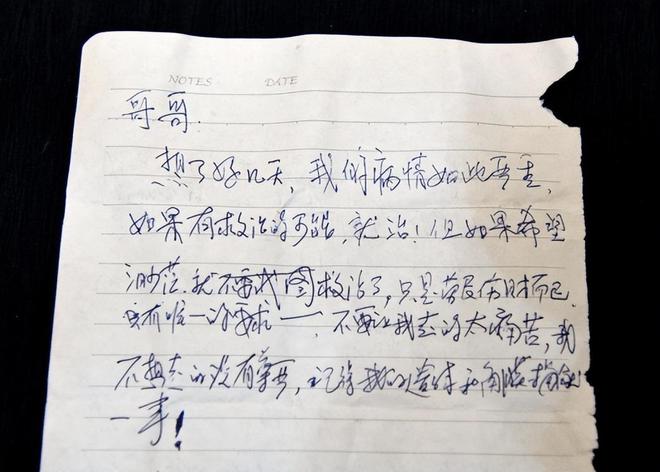 NOTES DATE
哥哥.
想了好几天,我的病情如此严重,
如果有救治的可能,就治!但如果希望
渺茫.就不要试图救治了,只是劳民伤财而已.
有唯一的要求——,不要让我走的太痛苦,我
不想走的没有尊严,记得我的遗体和角膜捐献
一事!